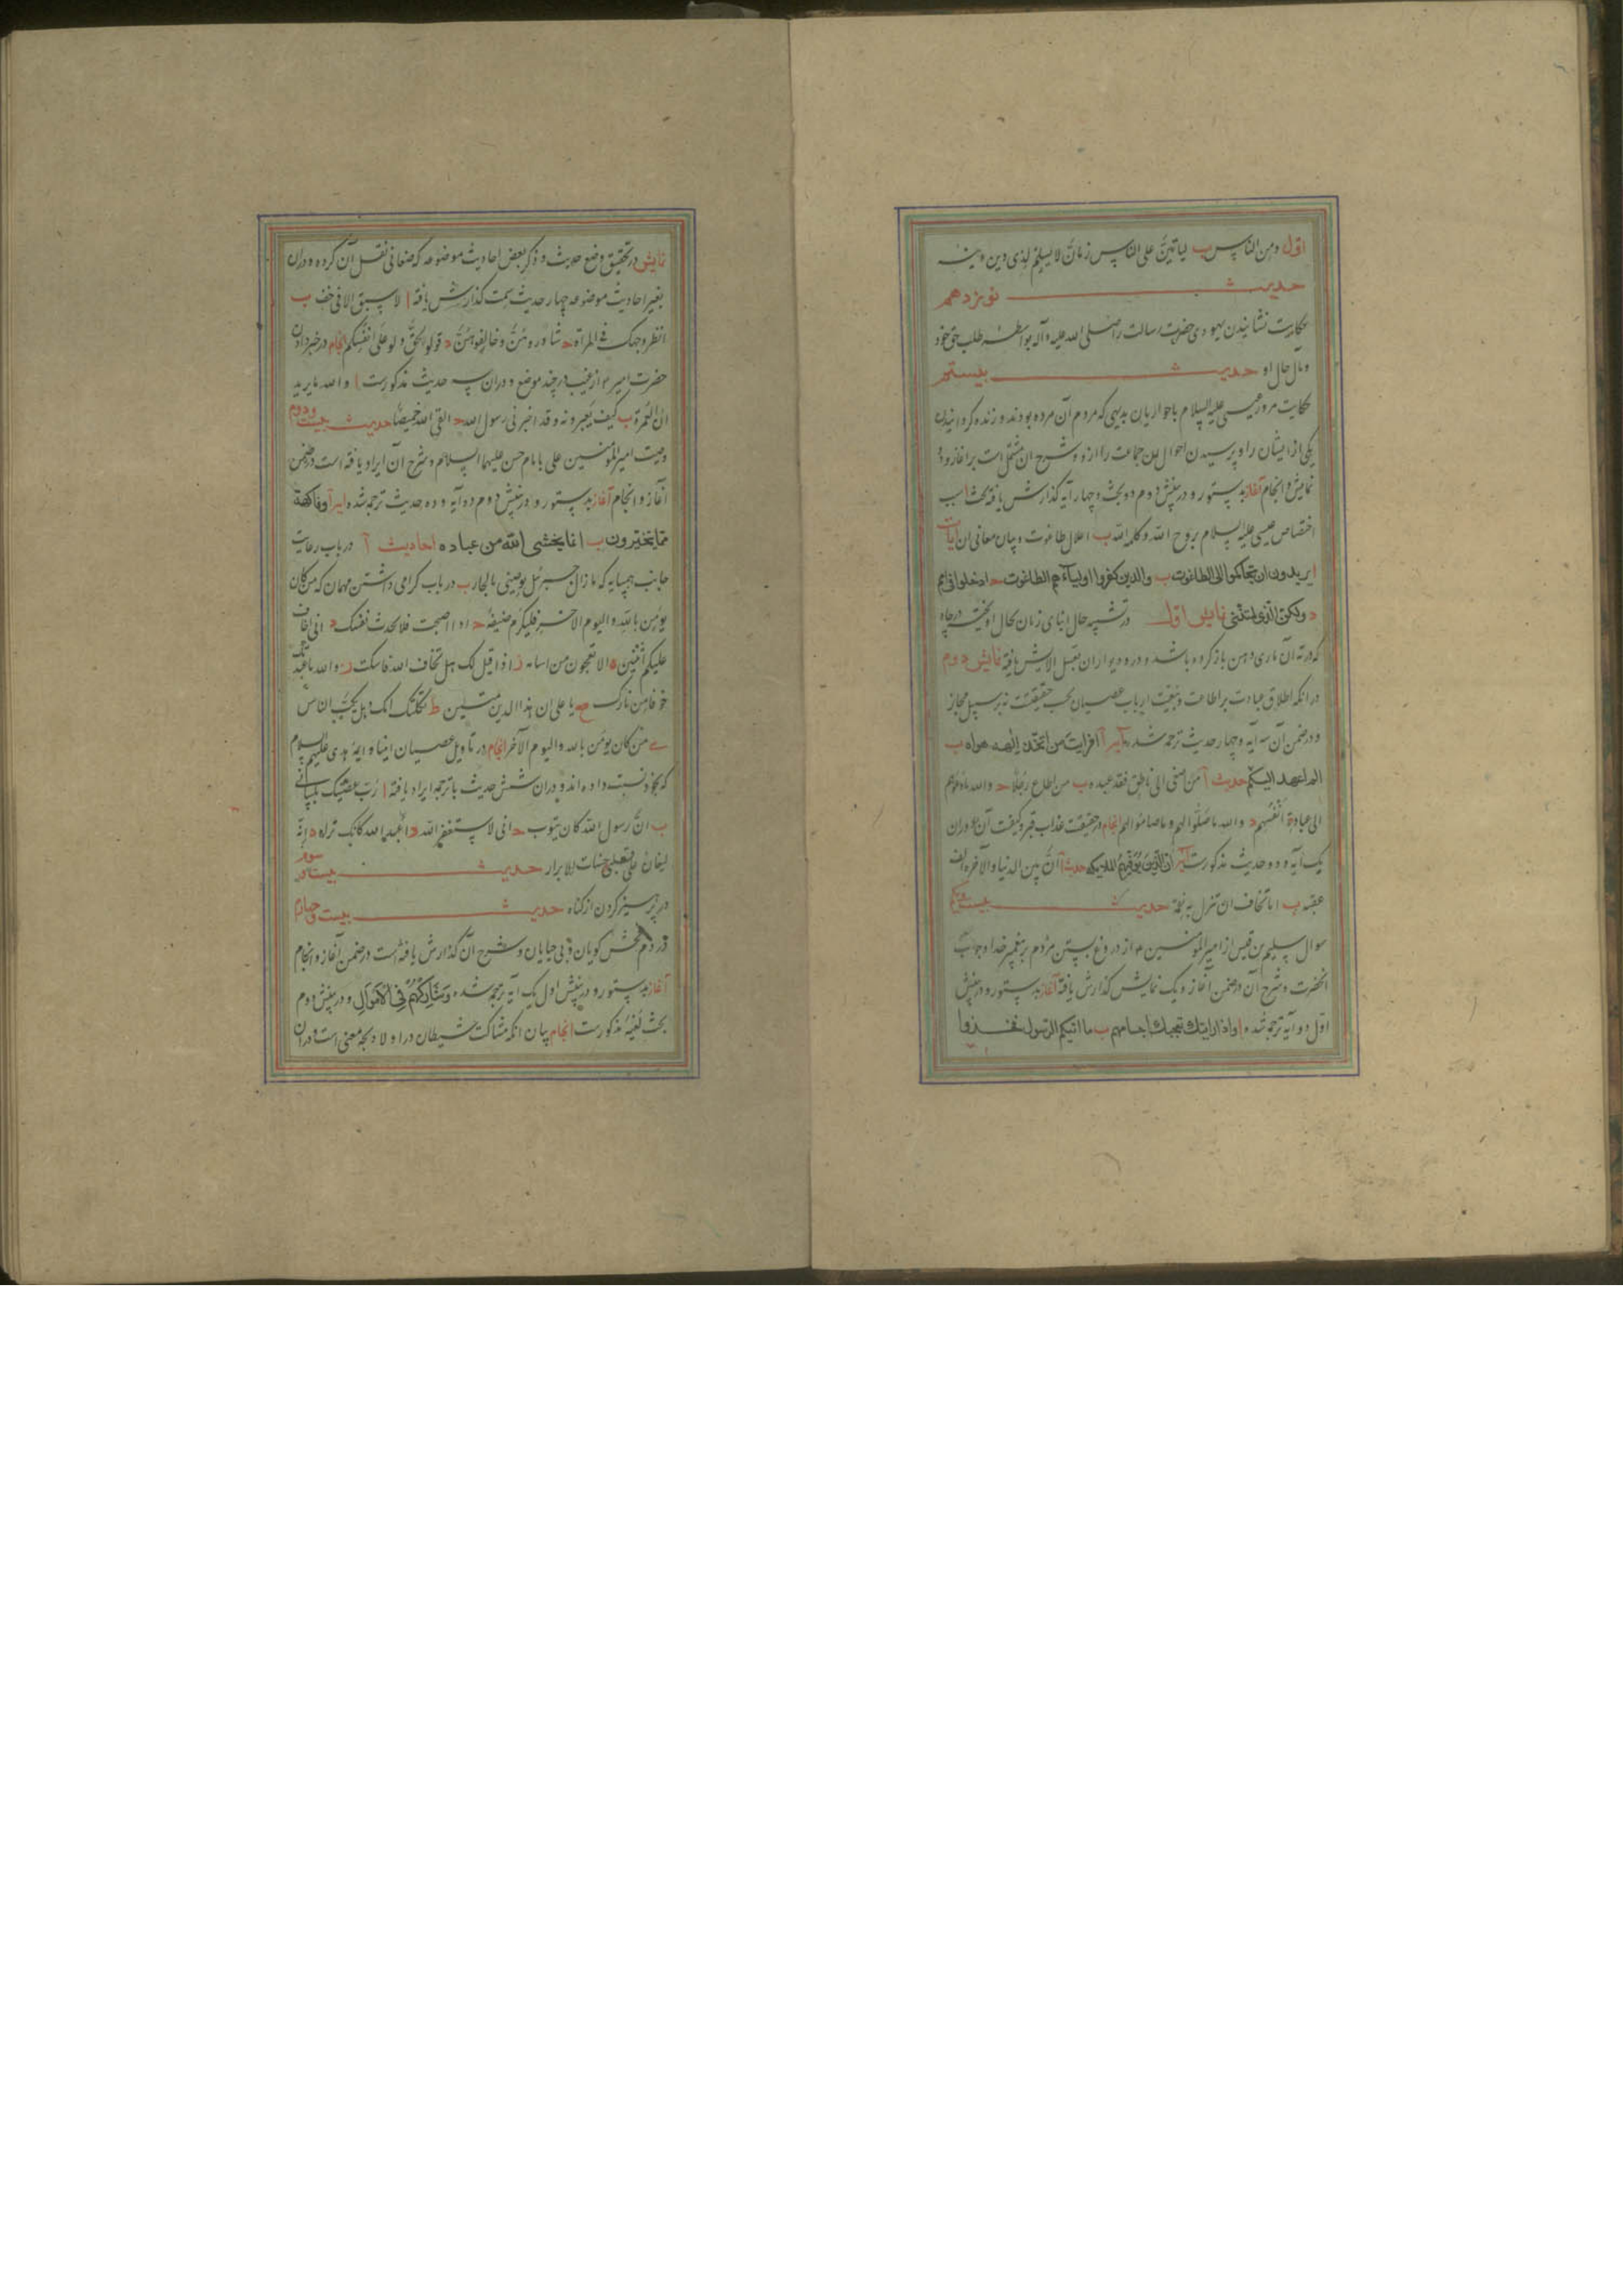 اول ومن الناس ب لیاتینّ علی الناس زمانٌ لا یسلم لذی دین دینه
حدیث نوزدهم
حکایت نشانیدن یهودی حضرت رسالت را صلی الله علیه وآله بواسطه طلب حق خود
ومآل حال او حدیث بیستم
حکایت مرور عیسی علیه السلام با حواریان بدیهی که مردم آن مرده بودند و زنده گردانیدن
یکی از ایشان را و پرسیدن احوال این جماعت را ازو و شرح ان مشتمل است بر آغاز و دو
نمایش و انجام آغاز بدستور و در بینش دوم دو بحث و چهار آیه گذارش یافته بحث ا
اختصاص عیسی علیه السلام بروح الله و کلمة الله ب اعلال طاغوت و بیان معانی ان آیات
ا یریدون ان یتحاکموا الی الطاغوت ب والذین کفروا اولیآءهم الطاغوت ح ادخلوا فی امم
د ولکنّ الذی لمتننی نمایش اول در تشبیه حال ابنای زمان بحال آویخته در چاه
که در ته آن ماری دهن باز کرده باشد و در و دیوار ان بعسل الایش یافته نمایش دوم
در انکه اطلاق عبادت بر اطاعت و تبعیت ارباب عصیان بحسب حقیقتست نه بر سبیل مجاز
و در ضمن آن سه آیه و چهار حدیث ترجمه شده آیه ا افرایت من اتخذ الهه هواه ب
الم اعهد الیکم حدیث ا من اصغی الی ناطق فقد عبده ب من اطاع رجلا ح والله ما دعوهم
الی عبادة انفسهم د والله ما صلّوا لهم و ما صاموا لهم انجام در حقیقت عذاب قبر و کیفیت آن و دران
یک آیه و دو حدیث مذکورست آیه ان الذین توفیهم الملایکه حدیث ا انّ بین الدنیا والآخره الف
عقبه ب اما تخاف ان تنزل به نقمة حدیث بیست ویکم
سوال سلیم بن قیس از امیر المومنین ع از دروغ بستن مردم بر پیغمبر خدا و جواب
انحضرت و شرح آن در ضمن آغاز و یک نمایش گذارش یافته آغاز بدستور و در بینش
اول دو آیه ترجمه شده ا واذا رایتهم تعجبك اجسامهم ب ما اتیکم الرسول فخذوا
نمایش در تحقیق وضع حدیث و ذکر بعض احادیث موضوعه که صغانی نقل آن کرده و دران
بغیر احادیث موضوعه چهار حدیث سمت گذارش یافته ا لا سبق الا فی خف ب
انظر وجهک فی المرآة ح شاوروهنّ وخالفوهنّ د قولوا الحقّ ولو علی انفسکم انجام در خبر دادن
حضرت امیر ع از غیب در چند موضع و دران سه حدیث مذکورست ا والله ما یرید
ان العمرة ب کیف یجبرونه وقد اخبرنی رسول الله ح القی الله خمیصا حدیث بیست ودوم
وصیت امیر المؤمنین علی با امام حسن علیهما السلام و شرح آن ایراد یافته است در ضمن
آغاز و انجام آغاز بدستور و در بینش دوم دو آیه و ده حدیث ترجمه شده آیه ا وفاکهة
مما یتخیرون ب انما یخشی الله من عباده احادیث ا در باب رعایت
جانب همسایه که ما زال جبرئل یوصینی بالجار ب در باب گرامی داشتن مهمان که من کان
یؤمن بالله والیوم الاخر فلیکرم ضیفه ح اذا اصبحت فلا تحدث نفسک د انی اخاف
علیکم اثنین ه الا تعجبون من اسامه و اذا قیل لک هل تخاف الله فاسکت ز والله ما عبدتک
خوفا من نارک ح یا علی ان هذا الدین متین ط ثکلتک امک وهل یکبّ الناس
ی من کان یؤمن بالله والیوم الآخر انجام در تاویل عصیان انبیا و ایمهٔ هدی علیهم السلام
که بخود نسبت داده اند و دران شش حدیث با ترجمه ایراد یافته ا ربّ عصیتک بلسانی
ب انّ رسول الله کان یتوب ح انی لاستغفر الله د اعبد الله کانک تراه ه انّه
لیغان علی قلبی حسنات الابرار حدیث بیست وسوم
در پرهیز کردن از گناه حدیث بیست وچهارم
در ذم فحش گویان و بی حیایان و شرح آن گذارش یافته است در ضمن آغاز و انجام
آغاز بدستور و در بینش اول یک آیه ترجمه شده وشارکهم فی الاموال و در بینش دوم
بحث لغیه مذکورست انجام بیان انکه مشارکت شیطان در اولاد بچه معنی است و دران